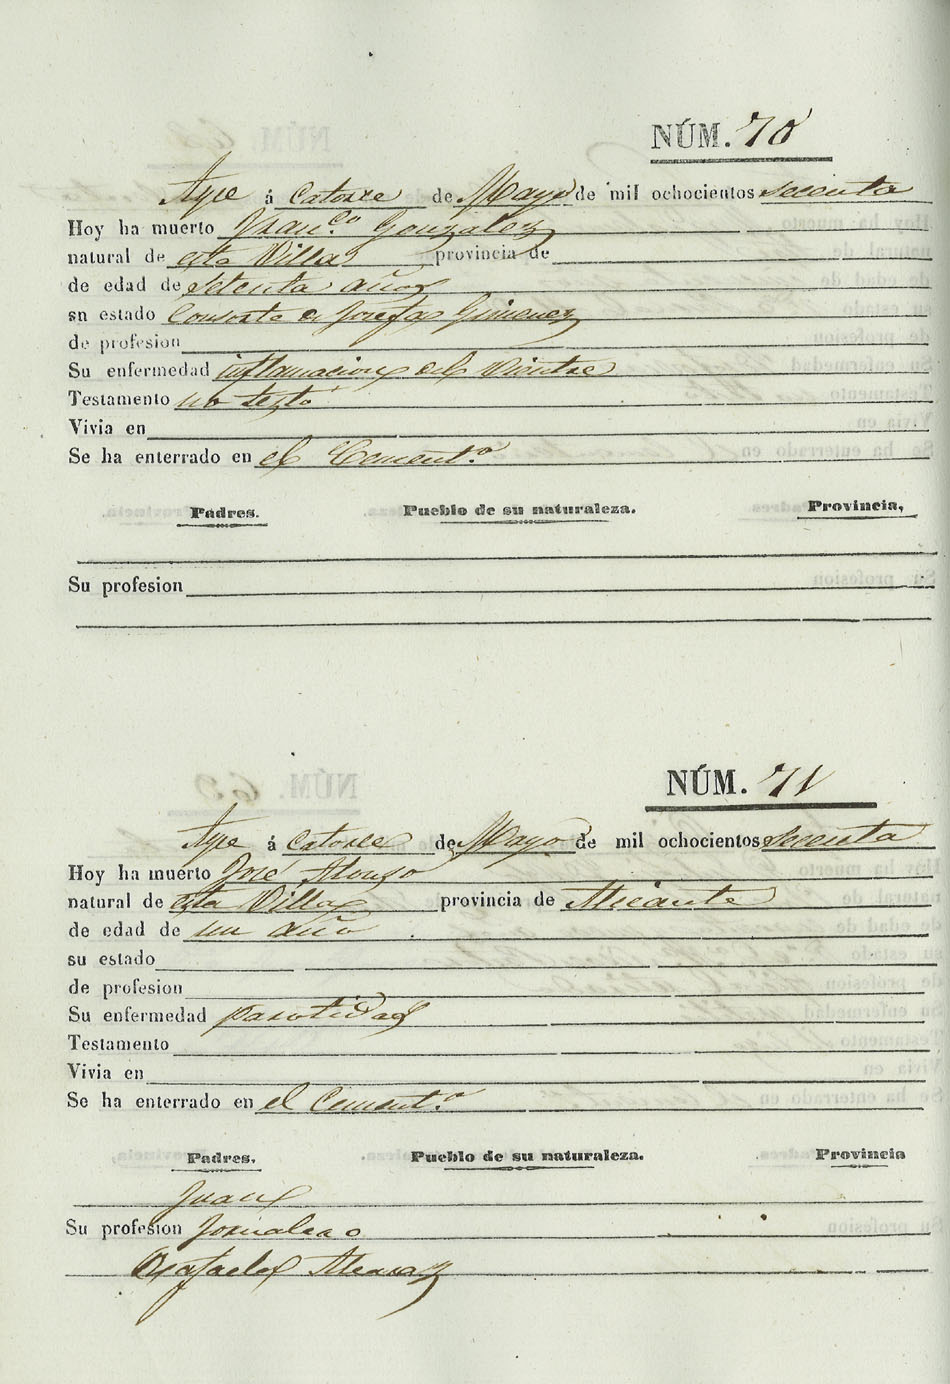 NÚM. 70
Aspe á Catorse de Mayo de mil ochocientos secenta
Hoy ha muerto Fran.co Gonzalez
natural de esta Villa provincia de
de edad de setenta años
sn estado Consorte de Josefa Gimenez
de profesion
Su enfermedad inflamacion del Vientre
Testamento no testó
Vivia en
Se ha enterrado en el Cement.o
Padres. Pueblo de su naturaleza. Provincia,
Su profesion
NÚM. 71
Aspe á Catorse de Mayo de mil ochocientos secenta
Hoy ha muerto José Alonso
natural de esta Villa provincia de Alicante
de edad de un año
su estado
de profesion
Su enfermedad parotidas
Testamento
Vivia en
Se ha enterrado en el Cement.o
Padres. Pueblo de su naturaleza. Provincia
Juan
Su profesion Jornalero
Rafaela Alcaraz